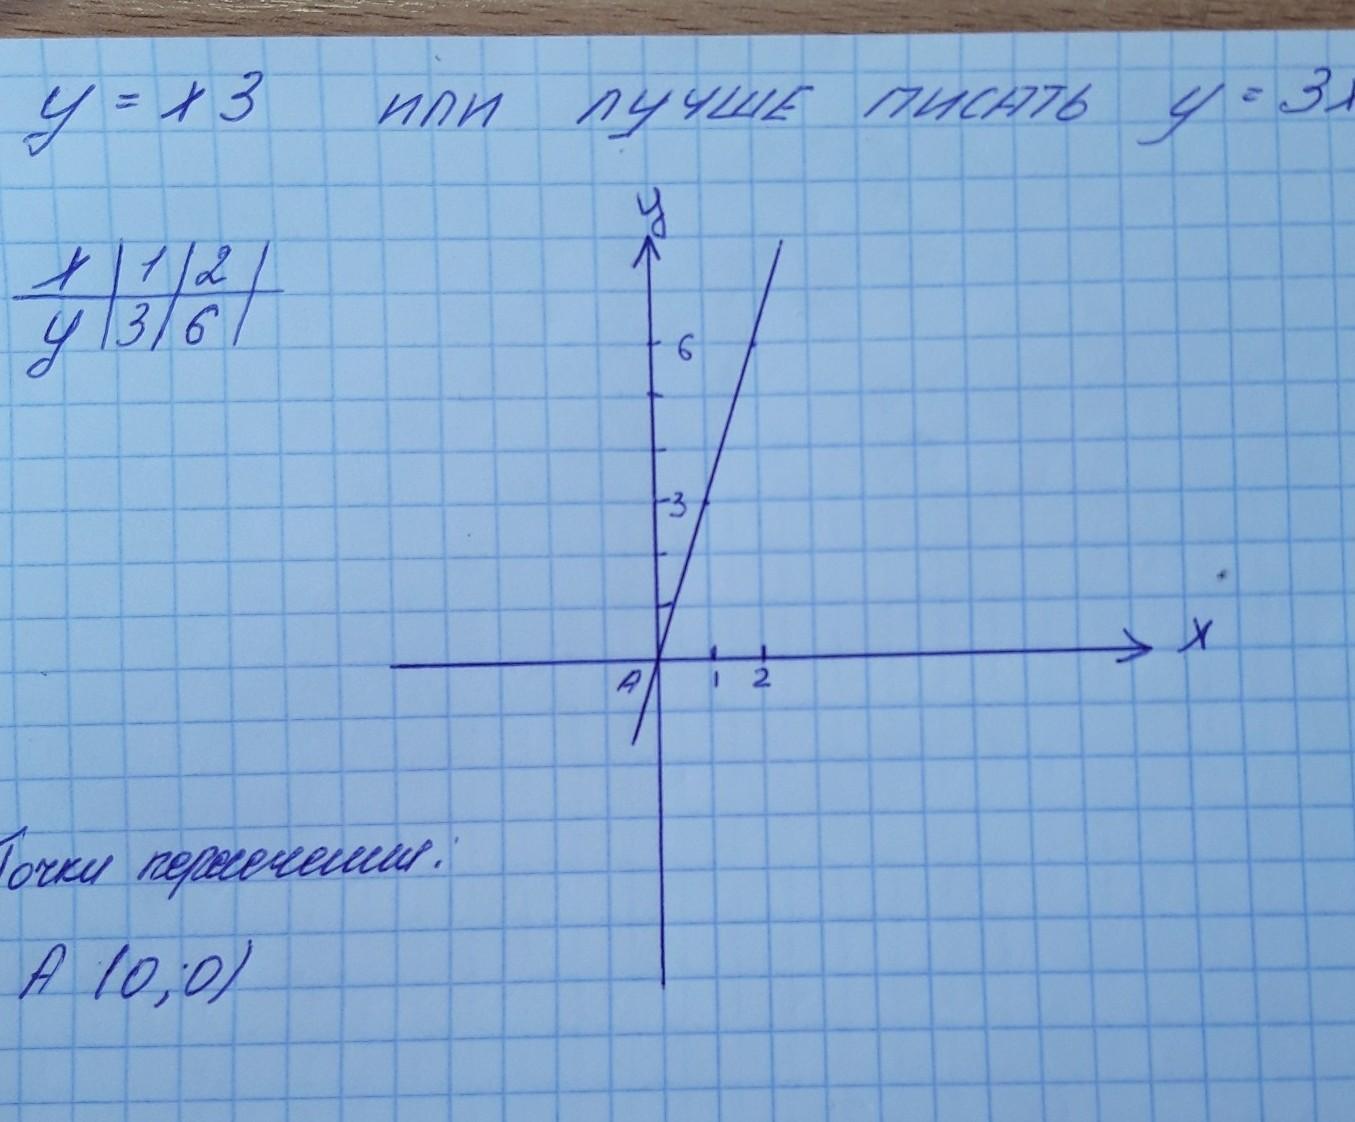 y = x 3 или лучше писать y = 3x
x | 1 | 2 |
y | 3 | 6 |
y
6
3
x
A 1 2
Точки пересечения:
A (0;0)